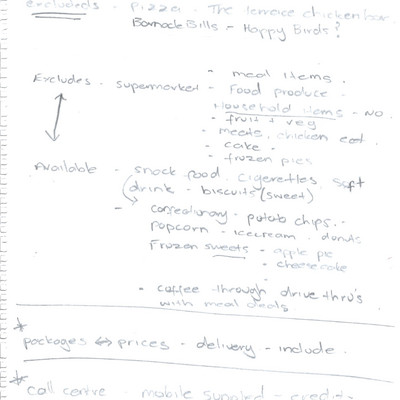 excludeds - Pizza - The terrace chicken bar.
Barnacle Bills - Happy Birds?
- meal items.
Excludes - supermarket - Food produce -
Household items - NO.
- fruit + veg
- meats, chicken eat.
- cake -
- frozen pies
Available - snack food, cigerettes, soft
drink - biscuits (sweet)
- confectionary - potato chips. -
popcorn - icecream - donuts
Frozen sweets - apple pie
- cheesecake
- coffee - through drive thru's
with meal deals
* packages ↔ prices - delivery - include.
* call centre - mobile supplied - credit -